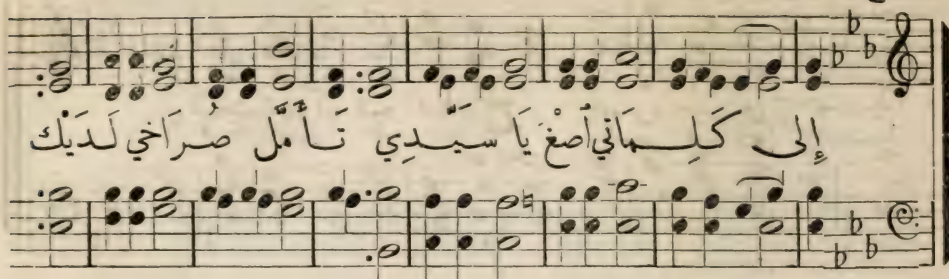 إِلى كَلِمَاتي أَصْغَ يَا سيِّدِي تَأَمَّل صُرَاخي لَدَيْك